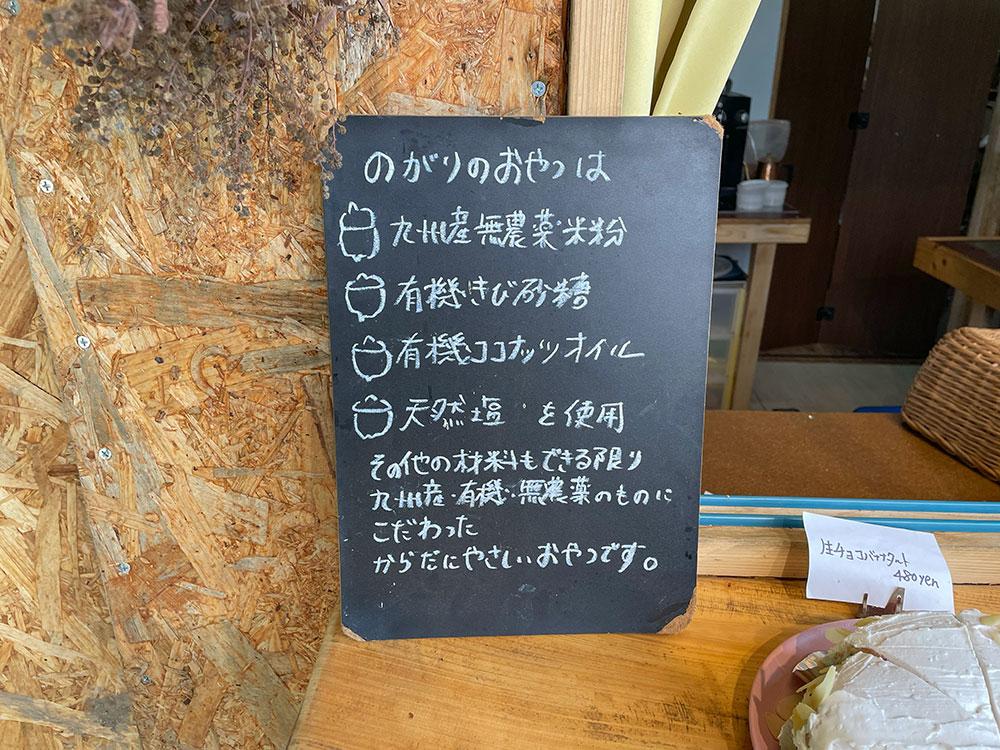 のがりのおやつは
九州産無農薬米粉
有機きび砂糖
有機ココナッツオイル
天然塩 を使用
その他の材料もできる限り
九州産・有機・無農薬のものに
こだわった
からだにやさしいおやつです。
生チョコバナナタルト
480yen